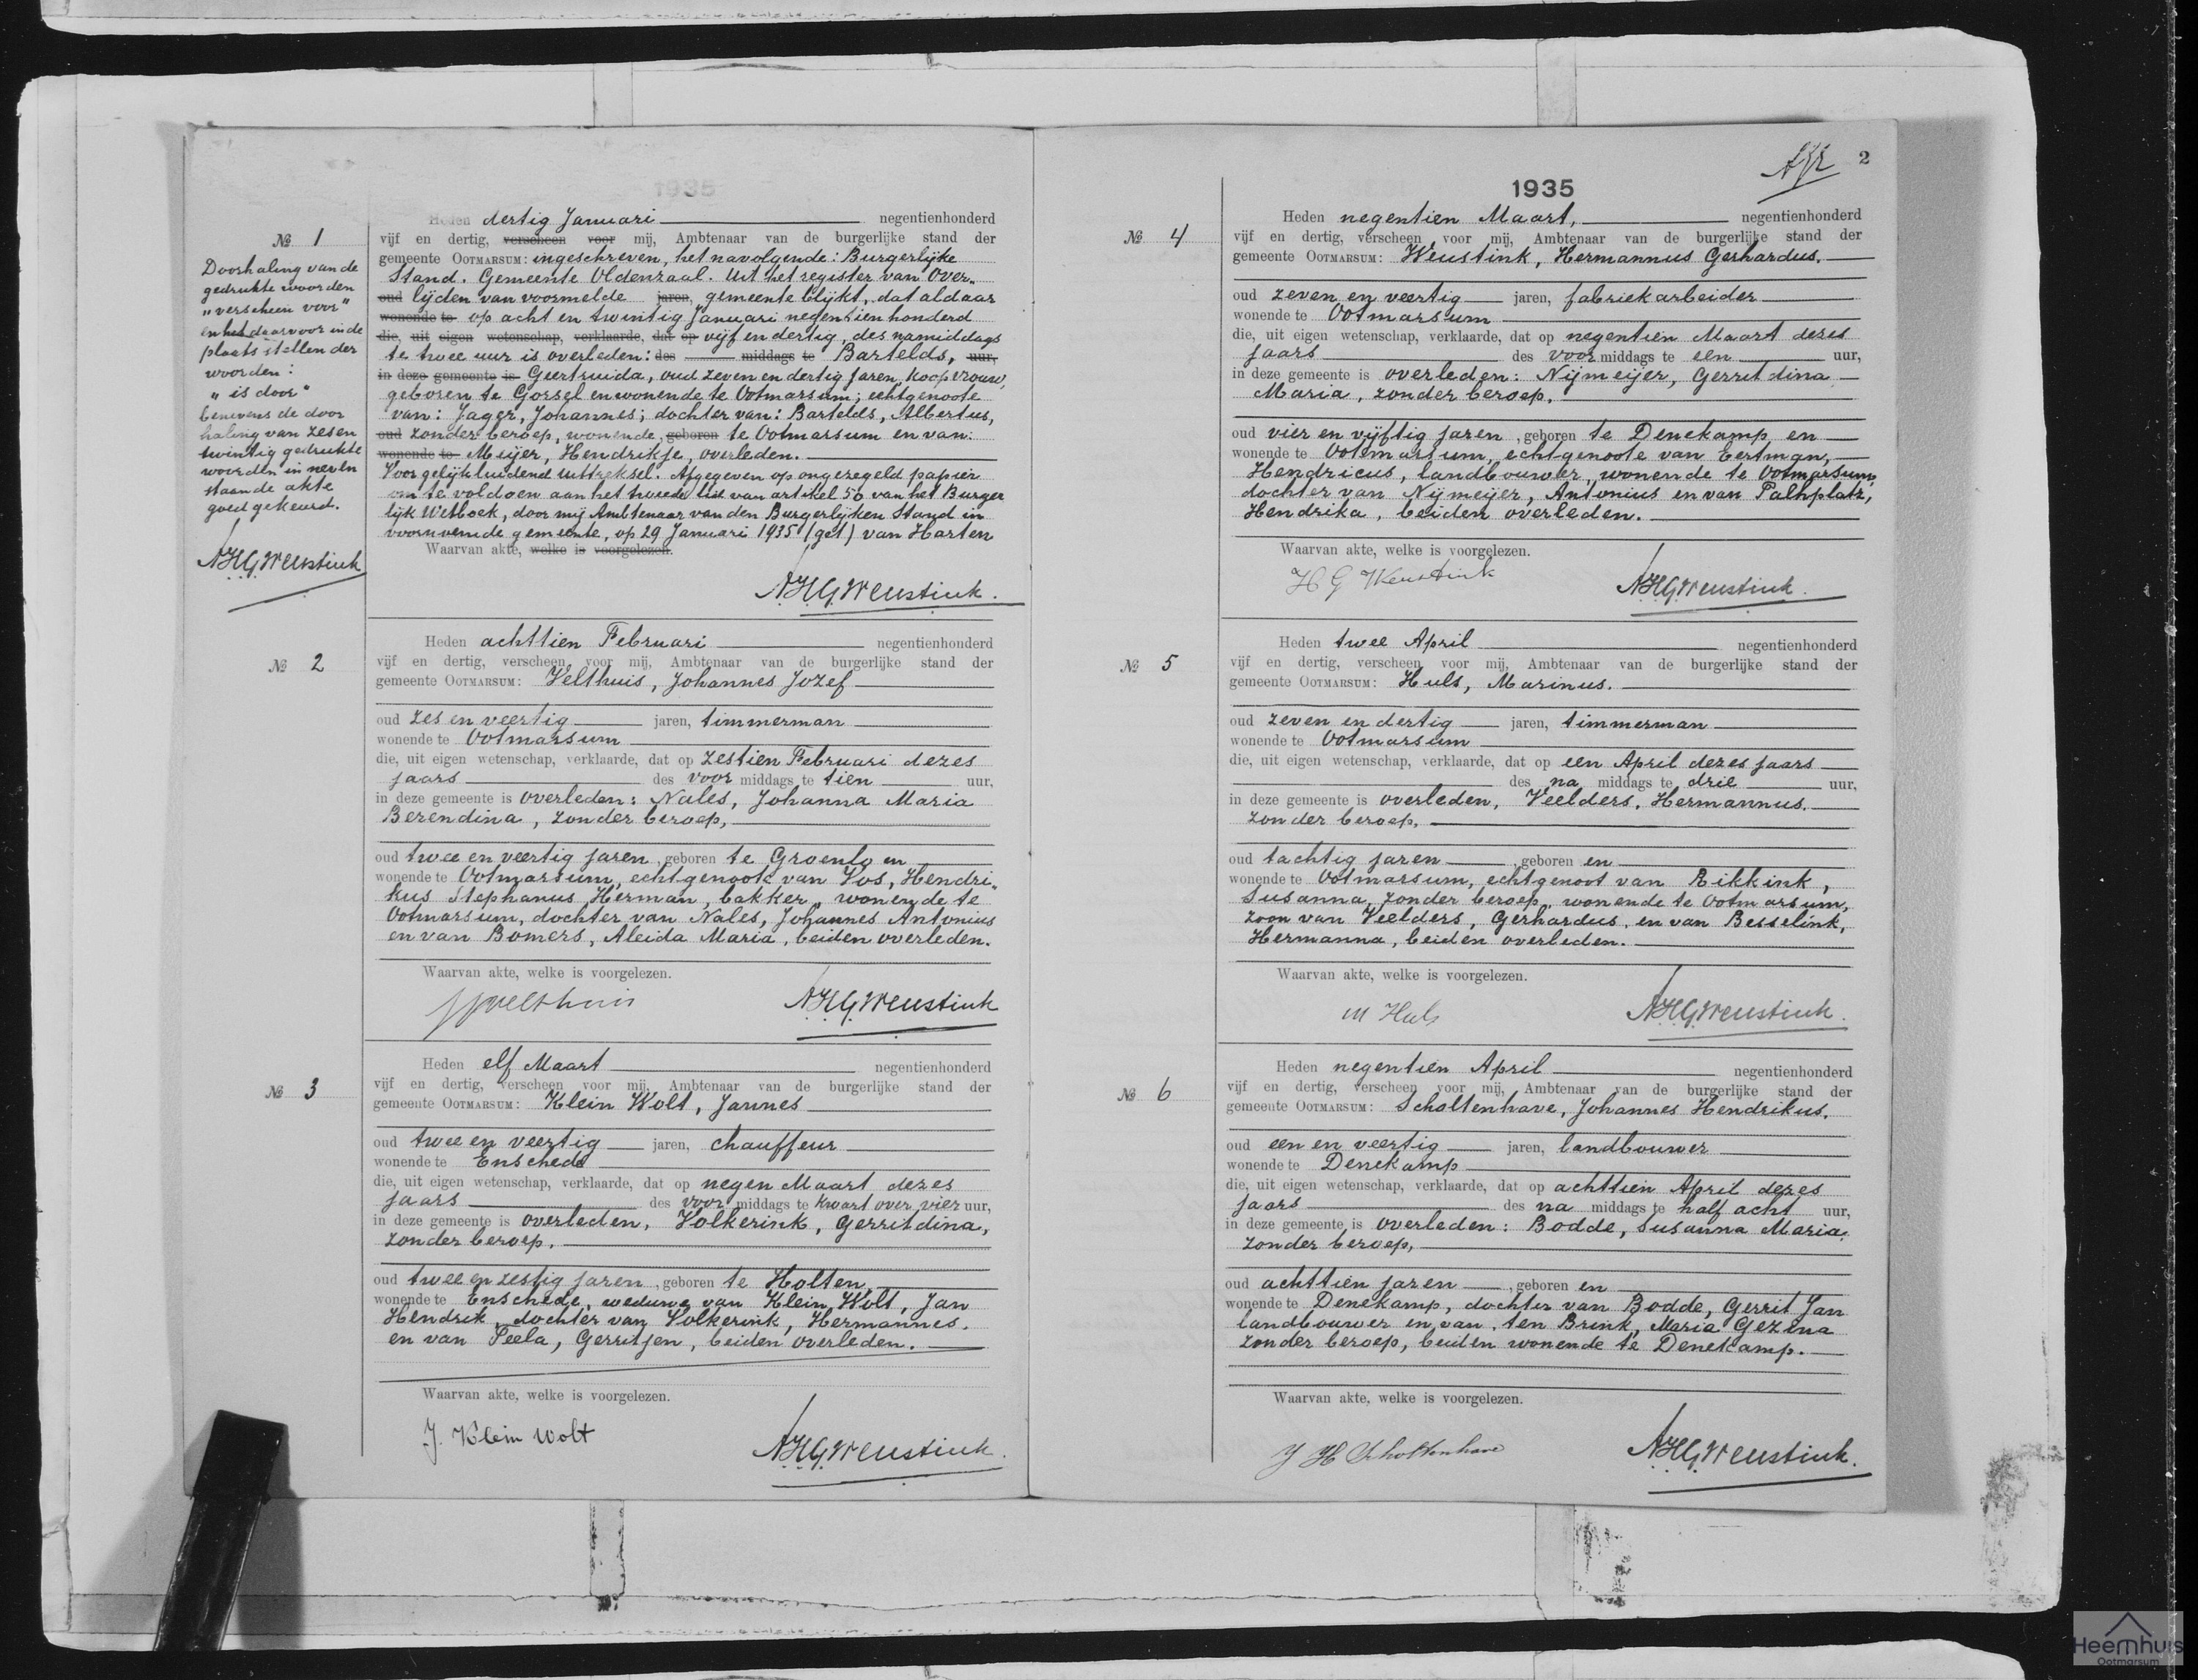 1935
Heden dertig Januari negentienhonderd
№ 1
vijf en dertig, verscheen voor mij, Ambtenaar van de burgerlijke stand der
gemeente OOTMARSUM: ingeschreven, het navolgende: Burgerlijke
Stand. Gemeente Oldenzaal. Uit het register van Over-
oud lijden van voormelde jaren, gemeente blijkt, dat aldaar
wonende te op acht en twintig Januari negentienhonderd
die, uit eigen wetenschap, verklaarde, dat op vijf en dertig, des namiddags
te twee uur is overleden: des middags te Bartelds, uur,
in deze gemeente is Geertruida, oud zeven en dertig jaren, koopvrouw,
geboren te Gorssel en wonende te Ootmarsum; echtgenoote
van: Jager, Johannes; dochter van: Bartelds, Albertus,
oud zonder beroep, wonende, geboren te Ootmarsum en van:
wonende te Meijer, Hendrikje, overleden.
Voor gelijkluidend uittreksel. Afgegeven op ongezegeld papier
om te voldoen aan het tweede lid van artikel 50 van het Burger
lijk Wetboek, door mij Ambtenaar van den Burgerlijken Stand in
voornoemde gemeente, op 29 Januari 1935 (get) van Harten
Waarvan akte, welke is voorgelezen.
NHGWeustink.
Doorhaling van de
gedrukte woorden
„verscheen voor"
en het daarvoor in de
plaats stellen der
woorden:
„is door"
benevens de door
haling van zes en
twintig gedrukte
woorden in neven
staande akte
goed gekeurd.
NHGWeustink
Heden achttien Februari negentienhonderd
№ 2
vijf en dertig, verscheen voor mij, Ambtenaar van de burgerlijke stand der
gemeente OOTMARSUM: Velthuis, Johannes Jozef
oud zes en veertig jaren, timmerman
wonende te Ootmarsum
die, uit eigen wetenschap, verklaarde, dat op zestien Februari dezes
jaars des voor middags te tien uur,
in deze gemeente is overleden: Nales, Johanna Maria
Berendina, zonder beroep,
oud twee en veertig jaren, geboren te Groenlo en
wonende te Ootmarsum, echtgenoote van Vos, Hendri-
kus Stephanus Herman, bakker, wonende te
Ootmarsum, dochter van Nales, Johannes Antonius
en van Bomers, Aleida Maria, beiden overleden.
Waarvan akte, welke is voorgelezen.
JJVelthuis NHGWeustink
Heden elf Maart negentienhonderd
№ 3
vijf en dertig, verscheen voor mij, Ambtenaar van de burgerlijke stand der
gemeente OOTMARSUM: Klein Wolt, Jannes
oud twee en veertig jaren, chauffeur
wonende te Enschede
die, uit eigen wetenschap, verklaarde, dat op negen Maart dezes
jaars des voor middags te kwart over vier uur,
in deze gemeente is overleden, Volkerink, Gerritdina,
zonder beroep.
oud twee en zestig jaren, geboren te Holten
wonende te Enschede, weduwe van Klein Wolt, Jan
Hendrik, dochter van Volkerink, Hermannes.
en van Peela, Gerritjen, beiden overleden.
Waarvan akte, welke is voorgelezen.
J. Klein Wolt NHGWeustink.
2
1935
Heden negentien Maart, negentienhonderd
№ 4
vijf en dertig, verscheen voor mij, Ambtenaar van de burgerlijke stand der
gemeente OOTMARSUM: Weustink, Hermannus Gerhardus.
oud zeven en veertig jaren, fabriekarbeider
wonende te Ootmarsum
die, uit eigen wetenschap, verklaarde, dat op negentien Maart dezes
jaars des voor middags te een uur,
in deze gemeente is overleden: Nijmeijer, Gerritdina
Maria, zonder beroep.
oud vier en vijftig jaren, geboren te Denekamp en
wonende te Ootmarsum, echtgenoote van Eertman,
Hendricus, landbouwer, wonende te Ootmarsum,
dochter van Nijmeijer, Antonius en van Palhplatz,
Hendrika, beiden overleden.
Waarvan akte, welke is voorgelezen.
H G Weustink NHGWeustink.
Heden twee April negentienhonderd
№ 5
vijf en dertig, verscheen voor mij, Ambtenaar van de burgerlijke stand der
gemeente OOTMARSUM: Huls, Marinus.
oud zeven en dertig jaren, timmerman
wonende te Ootmarsum
die, uit eigen wetenschap, verklaarde, dat op een April dezes jaars
des na middags te drie uur,
in deze gemeente is overleden, Veelders, Hermannus.
zonder beroep.
oud tachtig jaren, geboren en
wonende te Ootmarsum, echtgenoot van Rikkink,
Susanna, zonder beroep, wonende te Ootmarsum,
zoon van Veelders, Gerhardus, en van Besselink,
Hermanna, beiden overleden.
Waarvan akte, welke is voorgelezen.
M Huls NHGWeustink.
Heden negentien April negentienhonderd
№ 6
vijf en dertig, verscheen voor mij, Ambtenaar van de burgerlijke stand der
gemeente OOTMARSUM: Scholtenhave, Johannes Hendrikus.
oud een en veertig jaren, landbouwer
wonende te Denekamp
die, uit eigen wetenschap, verklaarde, dat op achttien April dezes
jaars des na middags te half acht uur,
in deze gemeente is overleden: Bodde, Susanna Maria.
zonder beroep,
oud achttien jaren, geboren en
wonende te Denekamp, dochter van Bodde, Gerrit Jan
landbouwer en van ten Brink, Maria Gezina
zonder beroep, beiden wonende te Denekamp.
Waarvan akte, welke is voorgelezen.
J H Scholtenhave NHGWeustink.
Heemhuis
Ootmarsum